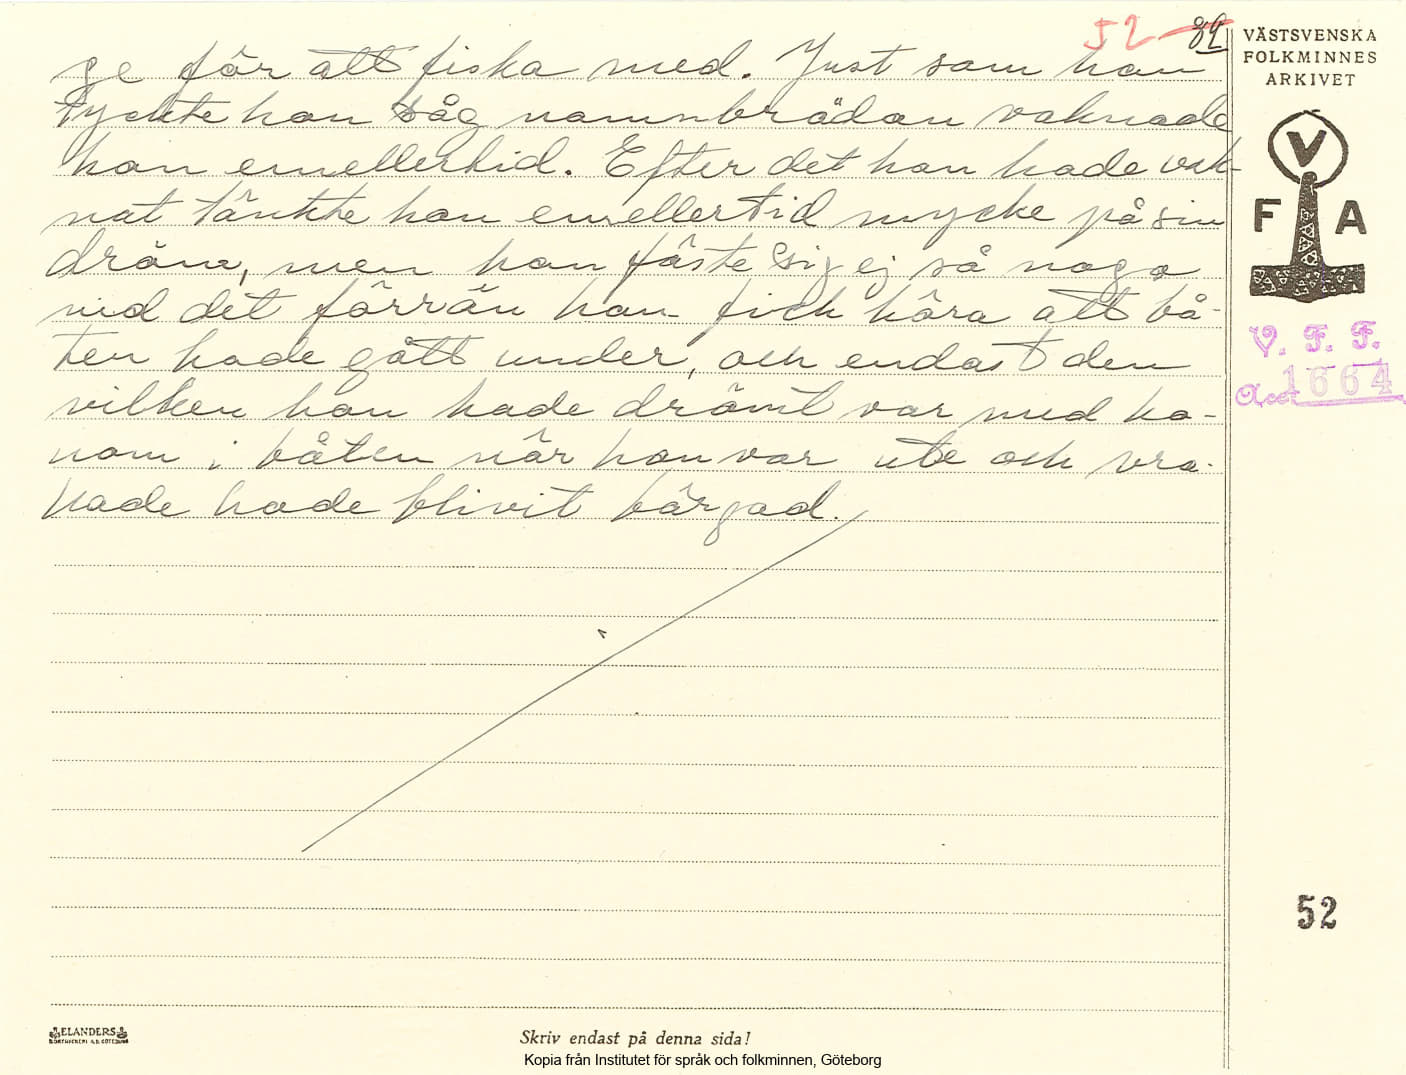 52 82
VÄSTSVENSKA
FOLKMINNES
ARKIVET
V
F A
V. F. F.
Acc. 1664
ge för att fiska med. Just som han
tyckte han såg namnbrädan vaknade
han emellertid. Efter det han hade vak-
nat tänkte han emellertid mycke på sin
dröm, men han fäste sig ej så noga
vid det förrän han fick höra att bå-
ten hade gått under, och endast den
vilken han hade drömt var med ho-
nom i båten när han var ute och vra-
kade hade blivit bärgad.
52
ELANDERS
BOKTRYCKERI A.B. GÖTEBORG
Skriv endast på denna sida!
Kopia från Institutet för språk och folkminnen, Göteborg